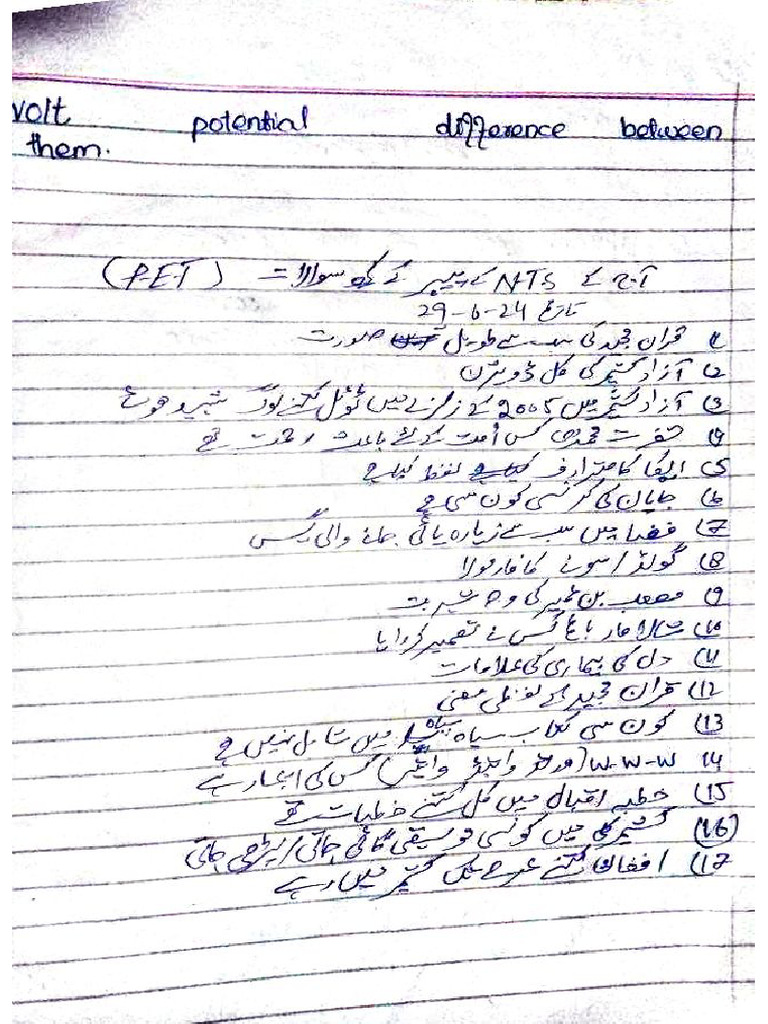 volt potential difference between
them.
آج کے NTS کے پیپر کے کچھ سوالات (P.E.T)
تاریخ 29-6-24
1) قران مجید کی سب سے طویل صورت
2) آزاد کشمیر کی کل ڈویژن
3) آزاد کشمیر میں 2005 کے زلزلے میں ٹوٹل کتنے لوگ شہید ہوئے
4) حضرت محمد کس اُمت کے لئے باعث رحمت تھے
5) ایفا کا مترادف لفظ کیا ہے
6) جاپان کی کرنسی کون سی ہے
7) فضا میں سب سے زیادہ پائی جانے والی گیس
8) گولڈ / سونے کا فارمولا
9) مصعب بن عمیر کی وجہ شہرت
10) شالامار باغ کس نے تعمیر کروایا
11) دل کی بیماری کی علامات
12) قران مجید کے لفظی معنی
13) کون سی کتاب سیاہ میں شامل نہیں ہے
14) W-W-W (ورلڈ وائیڈ) کس کی ایجاد ہے
15) خطبہ اقبال میں کل کتنے خطبات تھے
16) کشمیر میں کونسی موسیقی گائی جاتی / پڑھی جاتی
17) افغان کتنے عرصے تک کشمیر میں رہے